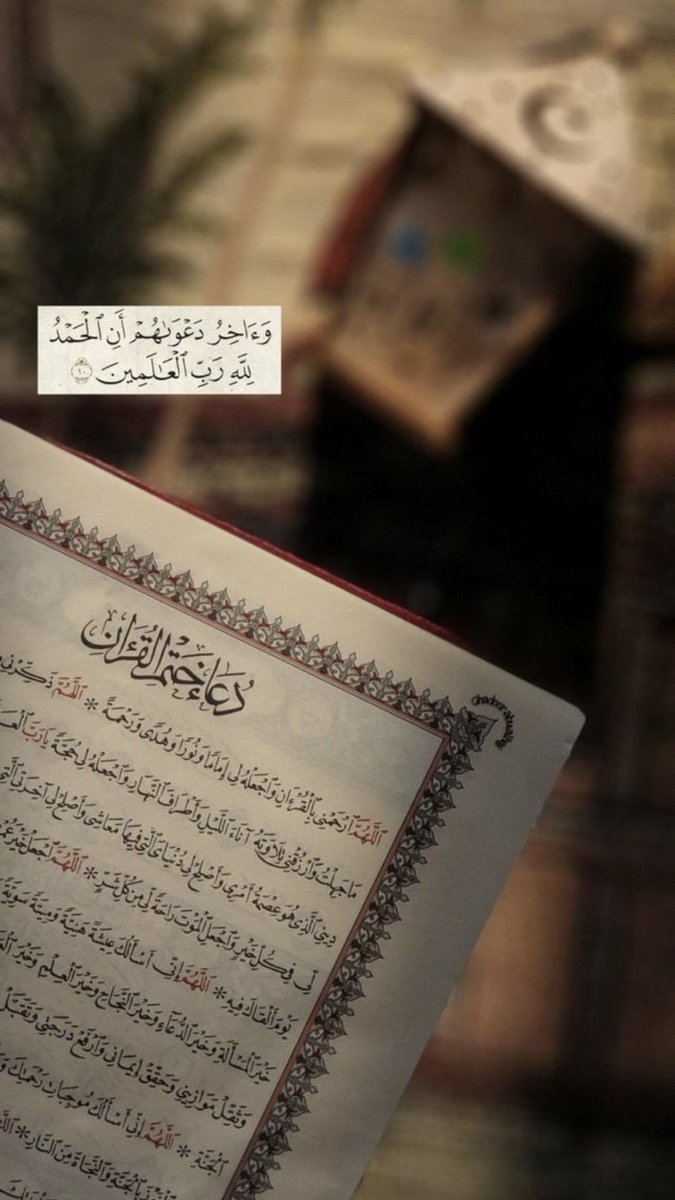 وَءَاخِرُ دَعْوَىٰهُمْ أَنِ ٱلْحَمْدُ
لِلَّهِ رَبِّ ٱلْعَـٰلَمِينَ ١٠
دُعَاءُ خَتْمِ الْقُرْءَانِ
اَللَّهُمَّ ارْحَمْنِي بِالْقُرْءَانِ وَاجْعَلْهُ لِي إِمَامًا وَنُورًا وَهُدًى وَرَحْمَةً * اَللَّهُمَّ ذَكِّرْنِي
مَا جَهِلْتُ وَارْزُقْنِي تِلَاوَتَهُ آنَاءَ اللَّيْلِ وَأَطْرَافَ النَّهَارِ وَاجْعَلْهُ لِي حُجَّةً يَا رَبَّ
دِينِي الَّذِي هُوَ عِصْمَةُ أَمْرِي وَأَصْلِحْ لِي دُنْيَايَ الَّتِي فِيهَا مَعَاشِي وَأَصْلِحْ لِي آخِرَتِي الَّتِي
لِي فِي كُلِّ خَيْرٍ وَاجْعَلِ الْمَوْتَ رَاحَةً لِي مِنْ كُلِّ شَرٍّ * اَللَّهُمَّ اجْعَلْ خَيْرَ
يَوْمَ أَلْقَاكَ فِيهِ * اَللَّهُمَّ إِنِّي أَسْأَلُكَ عِيشَةً هَنِيَّةً وَمِيتَةً سَوِيَّةً
خَيْرَ الْمَسْأَلَةِ وَخَيْرَ الدُّعَاءِ وَخَيْرَ النَّجَاحِ وَخَيْرَ الْعِلْمِ وَخَيْرَ
وَثَقِّلْ مَوَازِينِي وَحَقِّقْ إِيمَانِي وَارْفَعْ دَرَجَتِي وَتَقَبَّلْ
الْجَنَّةِ * اَللَّهُمَّ إِنِّي أَسْأَلُكَ مُوجِبَاتِ رَحْمَتِكَ
بِالْجَنَّةِ وَالنَّجَاةَ مِنَ النَّارِ *